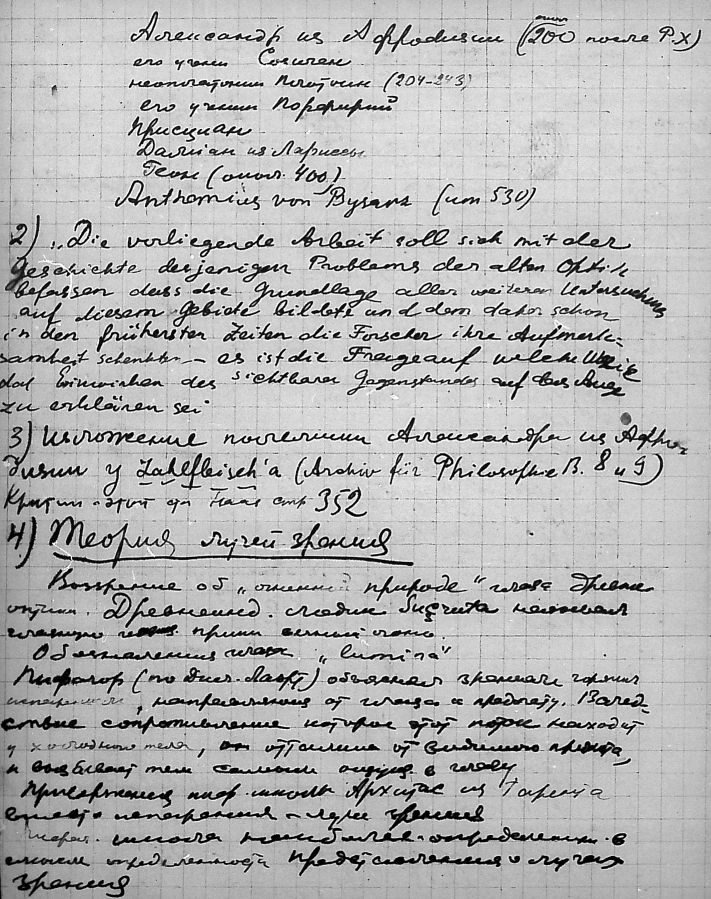 Александр из Афродизии (около 200 после Р.Х)
его ученик Сосиген
неоплатоник Плотин (204-243)
его ученик Порфирий
Присциан
Дамиан из Лариссы
Теон (около 400)
Anthemius von Byzanz (um 530)
2) „Die vorliegende Arbeit soll sich mit der
Geschichte desjenigen Problems der alten Optik
befassen dass die Grundlage aller weiteren Untersuchung
auf diesem Gebiete bildete und dem daher schon
in den frühersten Zeiten die Forscher ihre Aufmerk-
samkeit schenkten – es ist die Frage auf welche Weise
das Einwirken des sichtbaren Gegenstandes auf das Auge
zu erklären sei
3) Изложение полемики Александра из Афро-
дизии у Zahlfleisch'а (Archiv für Philosophie B. 8 и 9)
Критика этой Haas стр 352
4) Теория лучей зрения
Воззрение об „огненной природе“ глаза древни
оптики. Древнеинд. медик Suçruta называл
глаза
Обозначения глаза „lumina“
Пифагор (по Диог. Лаэрт) объяснял зрение горячим
испарением, направляющимся от глаза к предмету. Вслед-
ствие сопротивления которое этот поток находит
у холодного тела, он оттолкнут от видимого предмета,
и вызывает тем самым ощущ. в глазу
Приверженец пиф. школы Архитас из Тарента
вместо испарения – лучи зрения
школа наиболее определенна в
смысле определенности представления о лучах
зрения